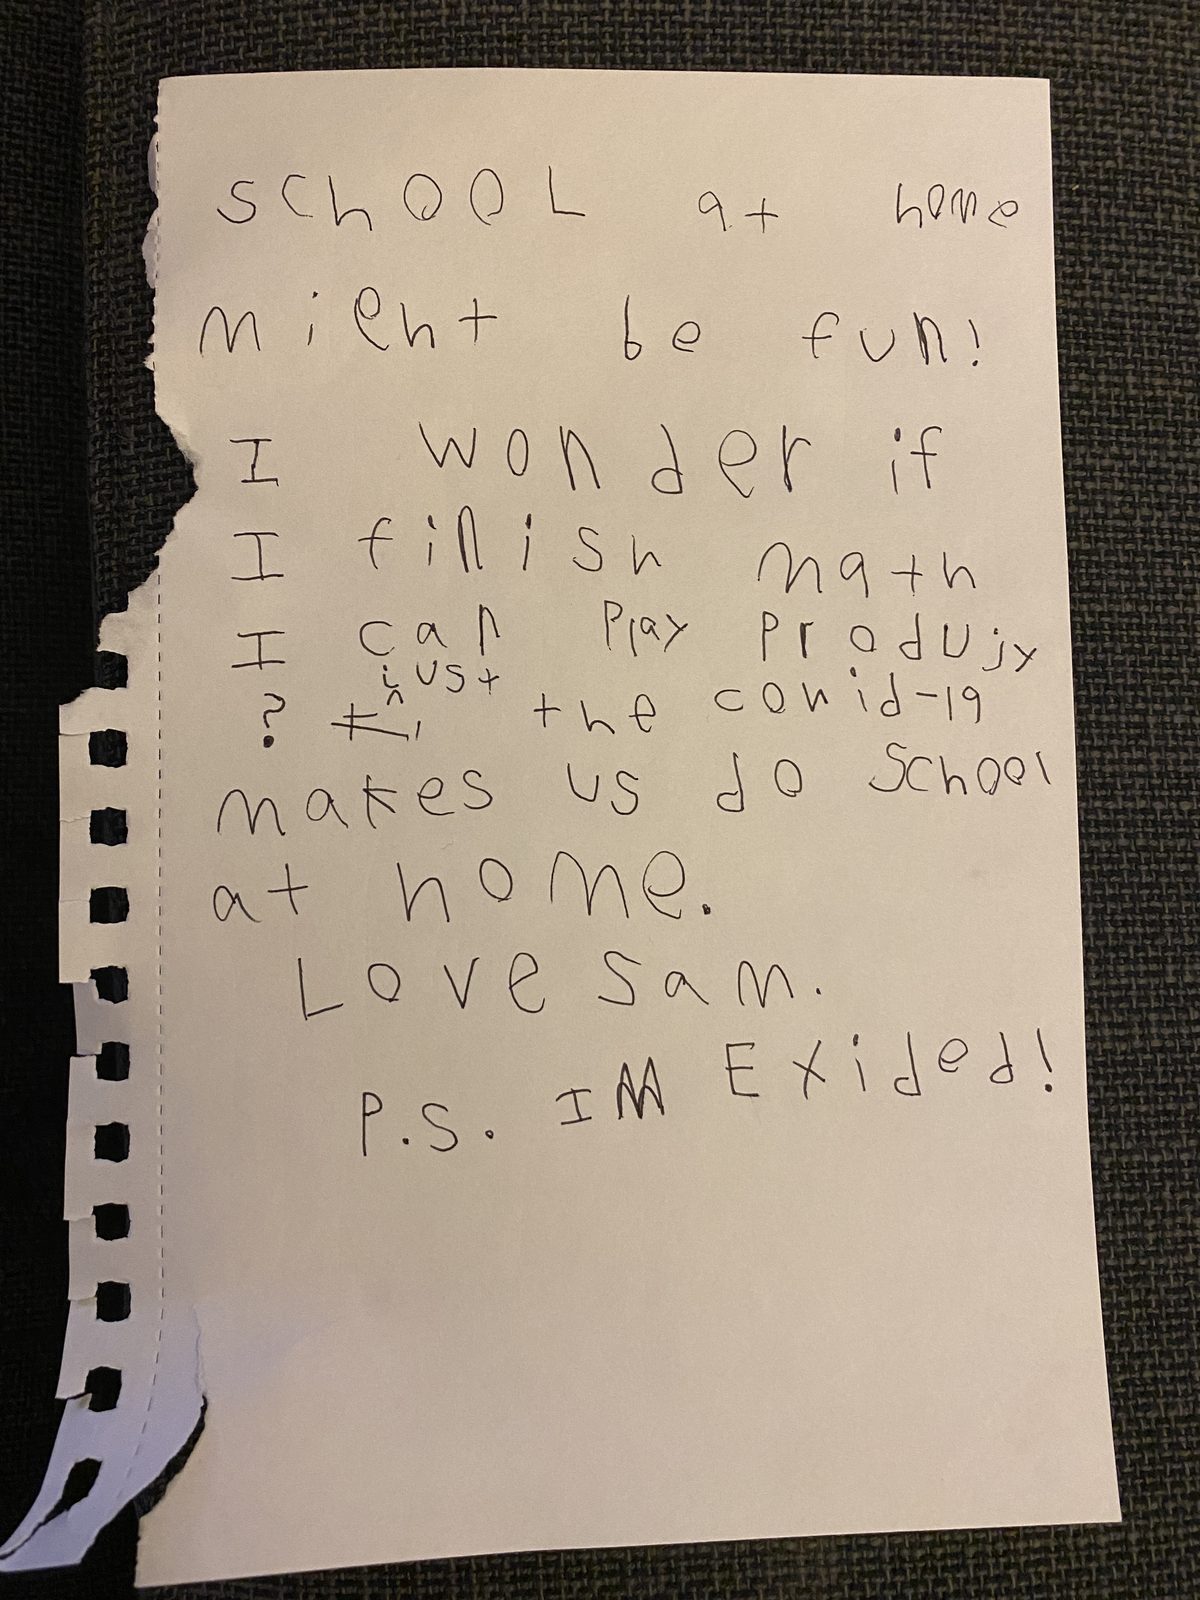 SChOOL at home
might be fun!
I wonder if
I finish math
I can Play Produjy
? just the covid-19
makes us do School
at home.
Love Sam.
P.S. IM Exided!